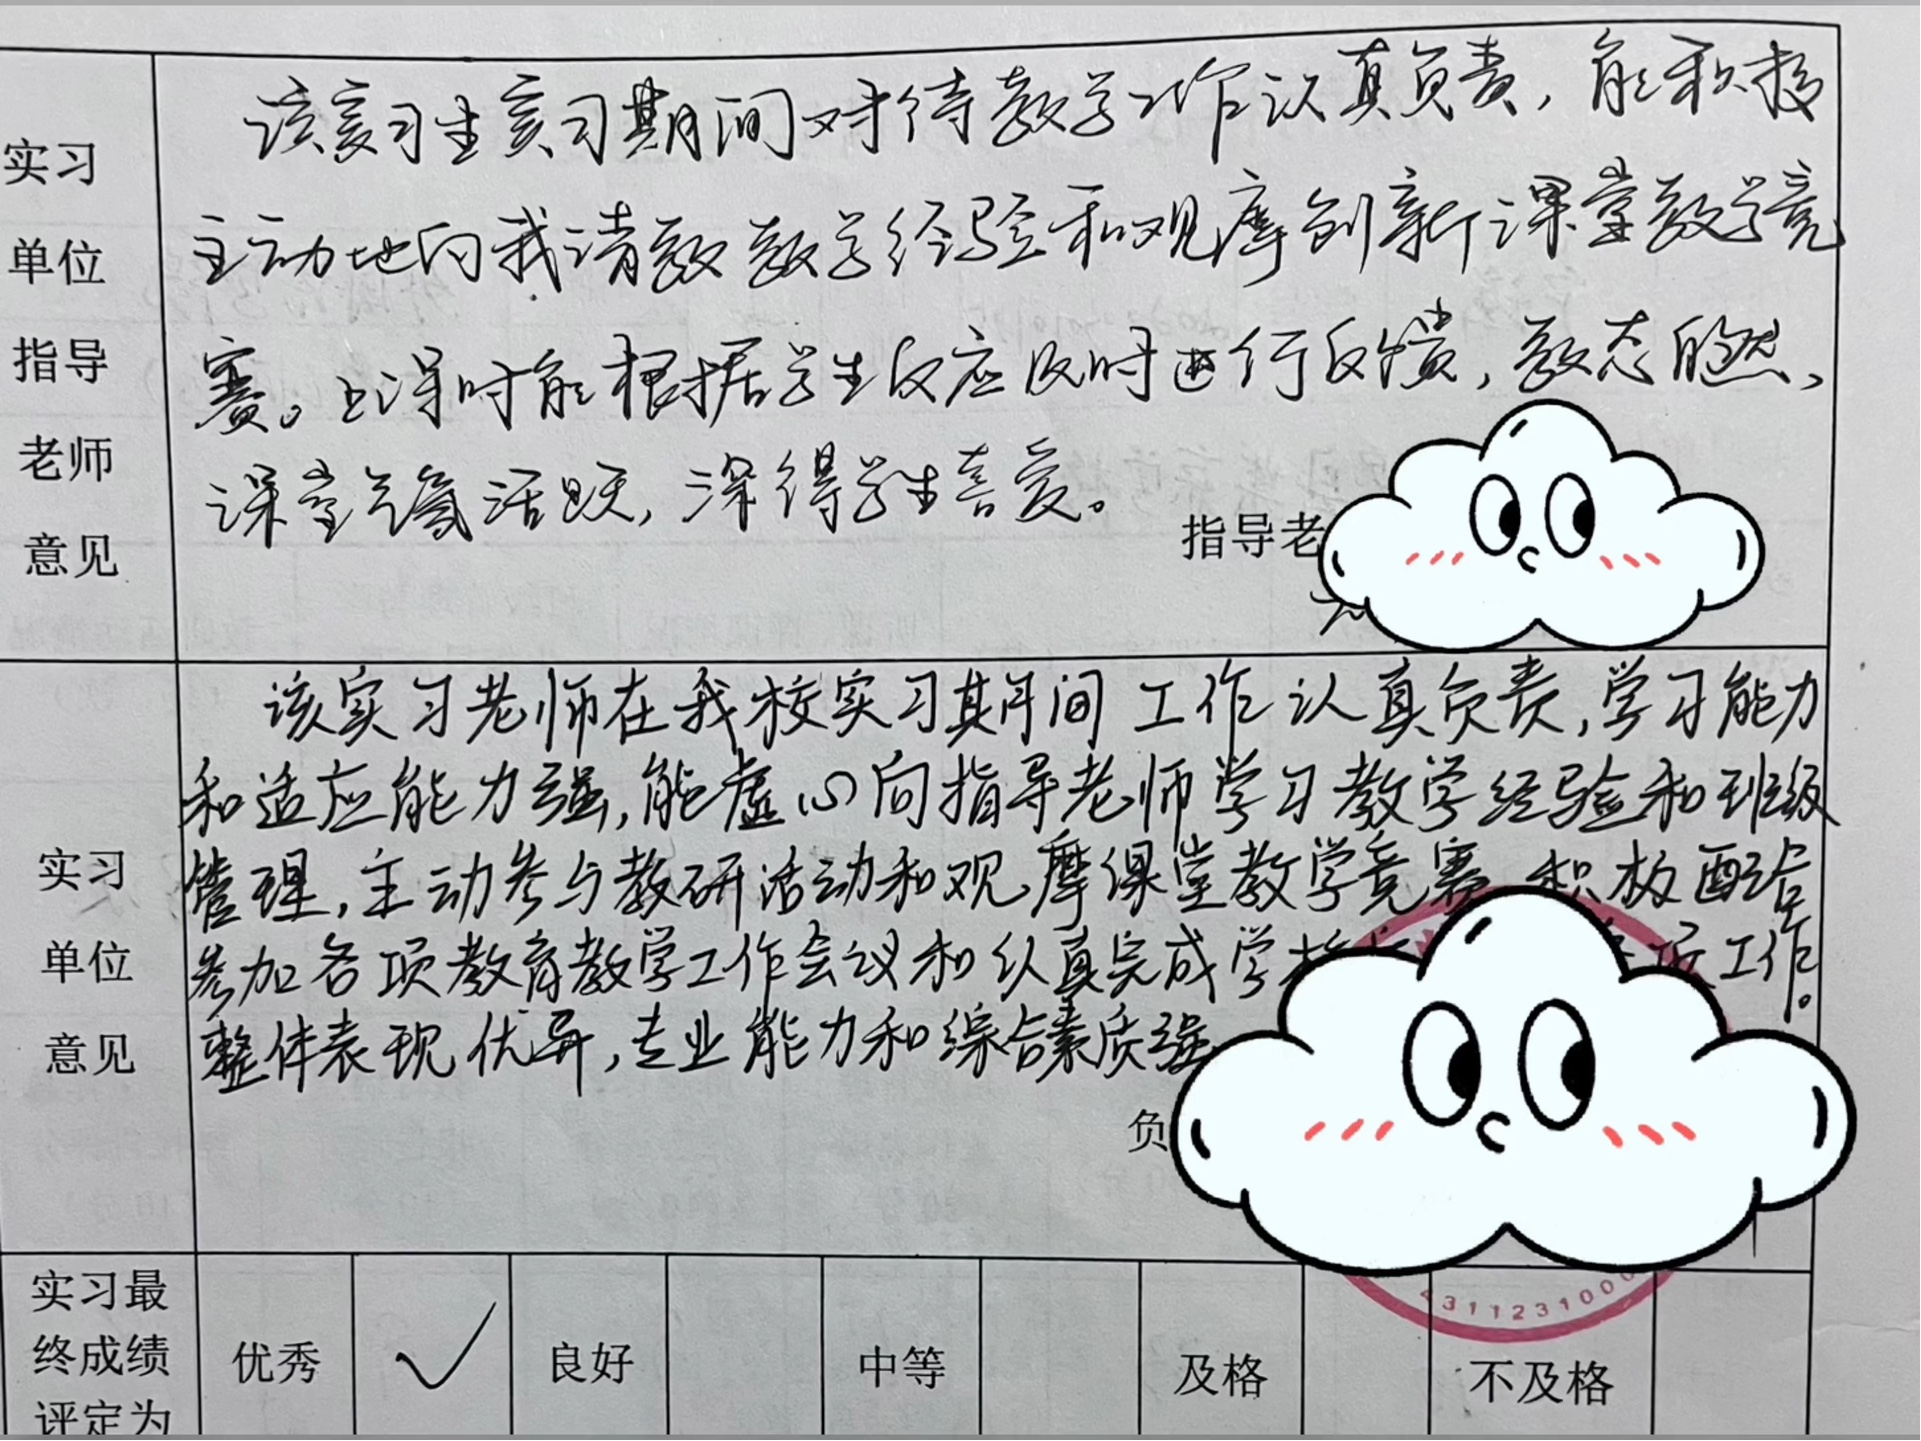 实习
单位
指导
老师
意见
该实习生实习期间对待教学工作认真负责，能积极
主动地向我请教教学经验和观摩创新课堂教学竞
赛。上课时能根据学生反应及时进行反馈，教态自然，
课堂气氛活跃，深得学生喜爱。
指导老
实习
单位
意见
该实习老师在我校实习期间工作认真负责，学习能力
和适应能力强，能虚心向指导老师学习教学经验和班级
管理，主动参与教研活动和观摩课堂教学竞赛 积极配合
参加各项教育教学工作会议和认真完成学 工作。
整体表现优异，专业能力和综合素质强
负
实习最
终成绩
评定为
优秀 ✓ 良好 中等 及格 不及格
4311231000